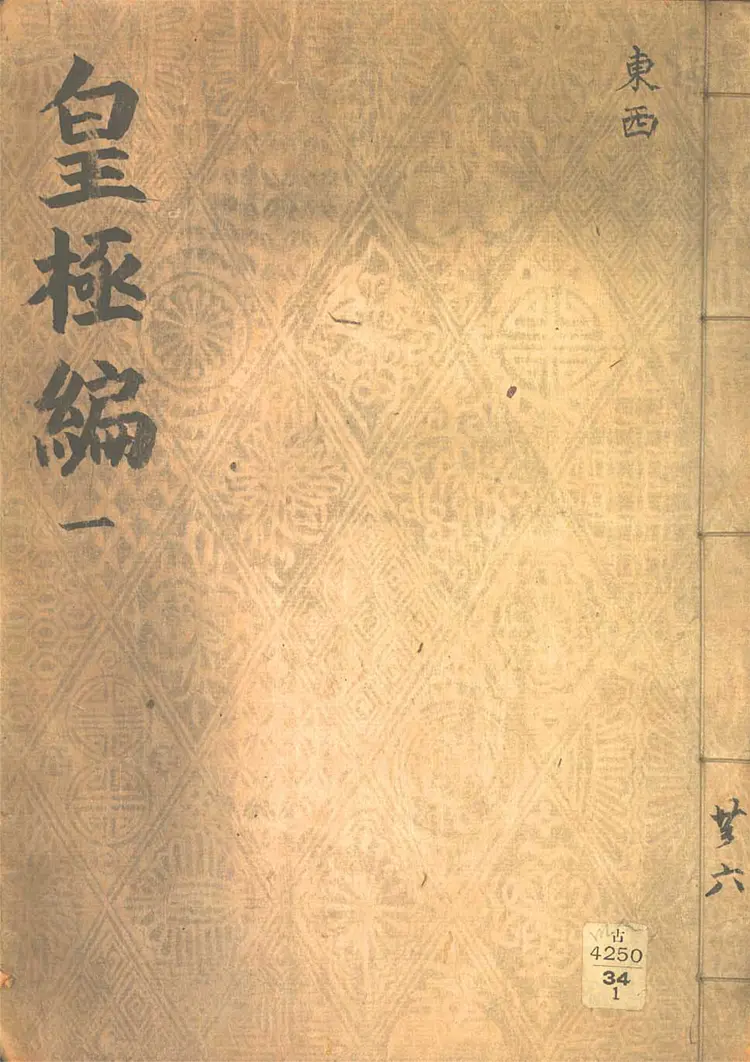 皇極編 一
東西
共六
古
4250
34
1